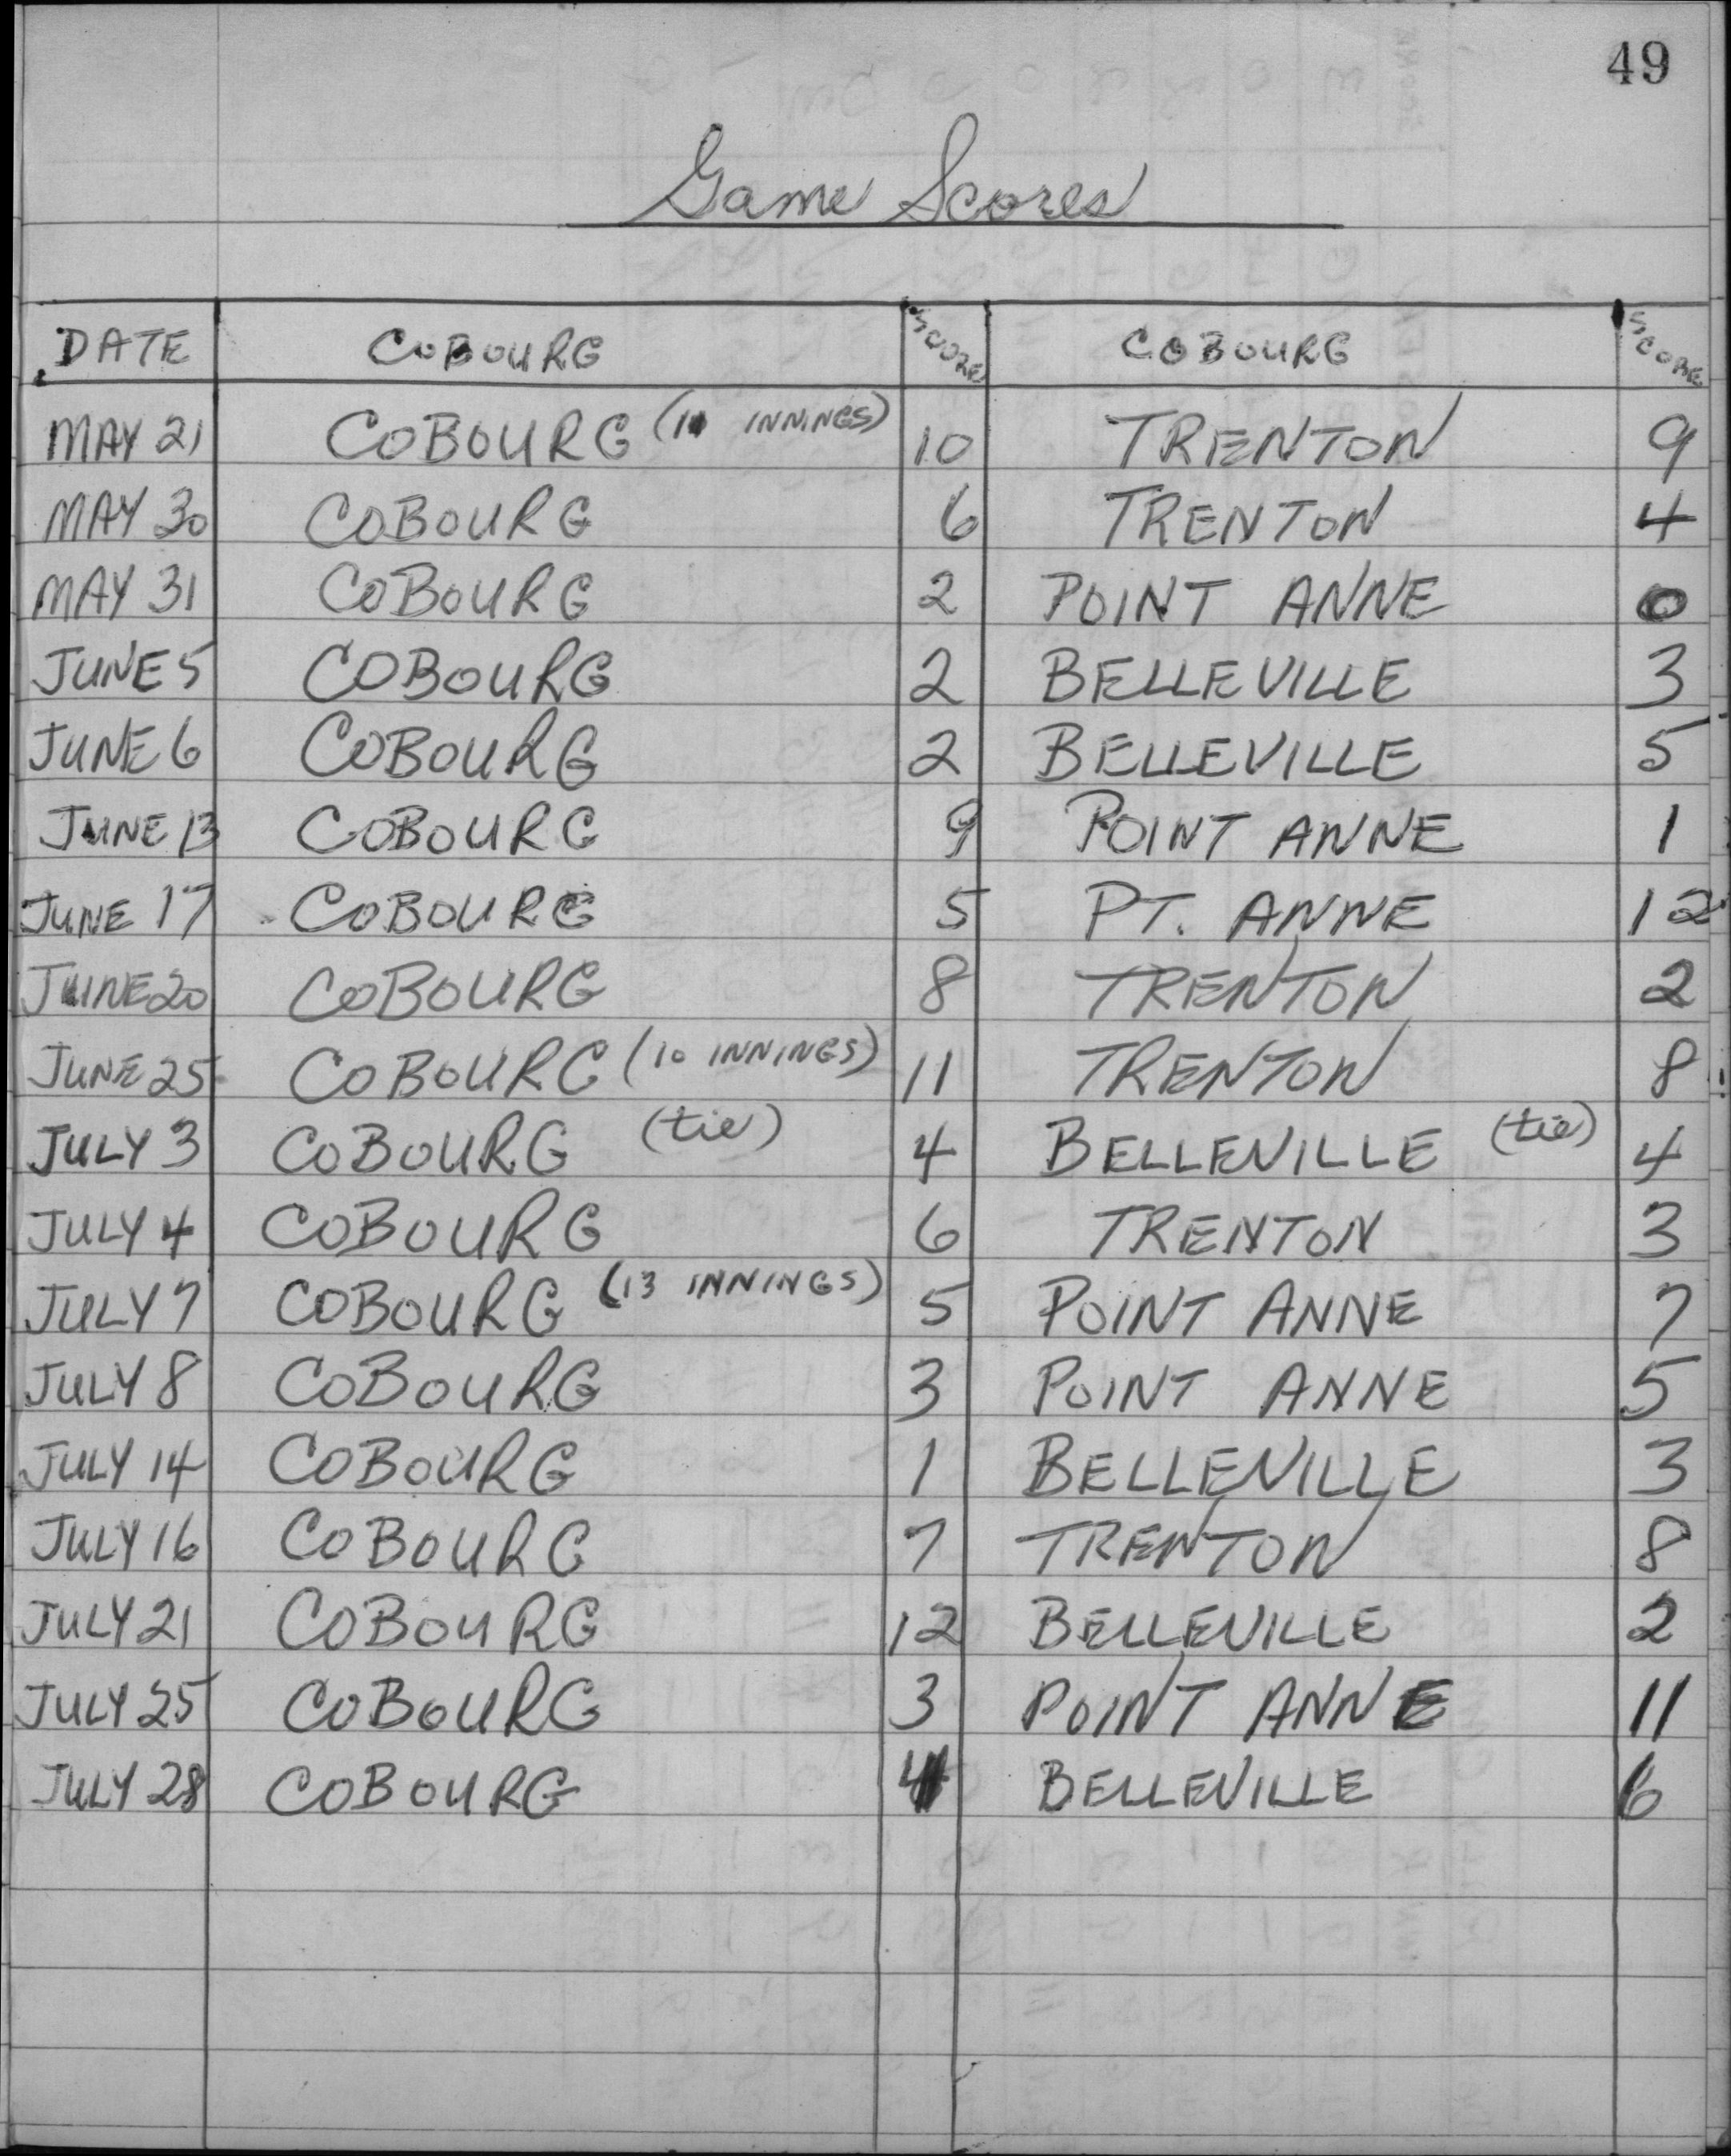 49
Game Scores
DATE COBOURG SCORE COBOURG SCORE
MAY 21 COBOURG (11 INNINGS) 10 TRENTON 9
MAY 30 COBOURG 6 TRENTON 4
MAY 31 COBOURG 2 POINT ANNE 0
JUNE 5 COBOURG 2 BELLEVILLE 3
JUNE 6 COBOURG 2 BELLEVILLE 5
JUNE 13 COBOURG 9 POINT ANNE 1
JUNE 17 COBOURG 5 PT. ANNE 12
JUNE 20 COBOURG 8 TRENTON 2
JUNE 25 COBOURG (10 INNINGS) 11 TRENTON 8
JULY 3 COBOURG (tie) 4 BELLEVILLE (tie) 4
JULY 4 COBOURG 6 TRENTON 3
JULY 7 COBOURG (13 INNINGS) 5 POINT ANNE 7
JULY 8 COBOURG 3 POINT ANNE 5
JULY 14 COBOURG 1 BELLEVILLE 3
JULY 16 COBOURG 7 TRENTON 8
JULY 21 COBOURG 12 BELLEVILLE 2
JULY 25 COBOURG 3 POINT ANNE 11
JULY 28 COBOURG 4 BELLEVILLE 6